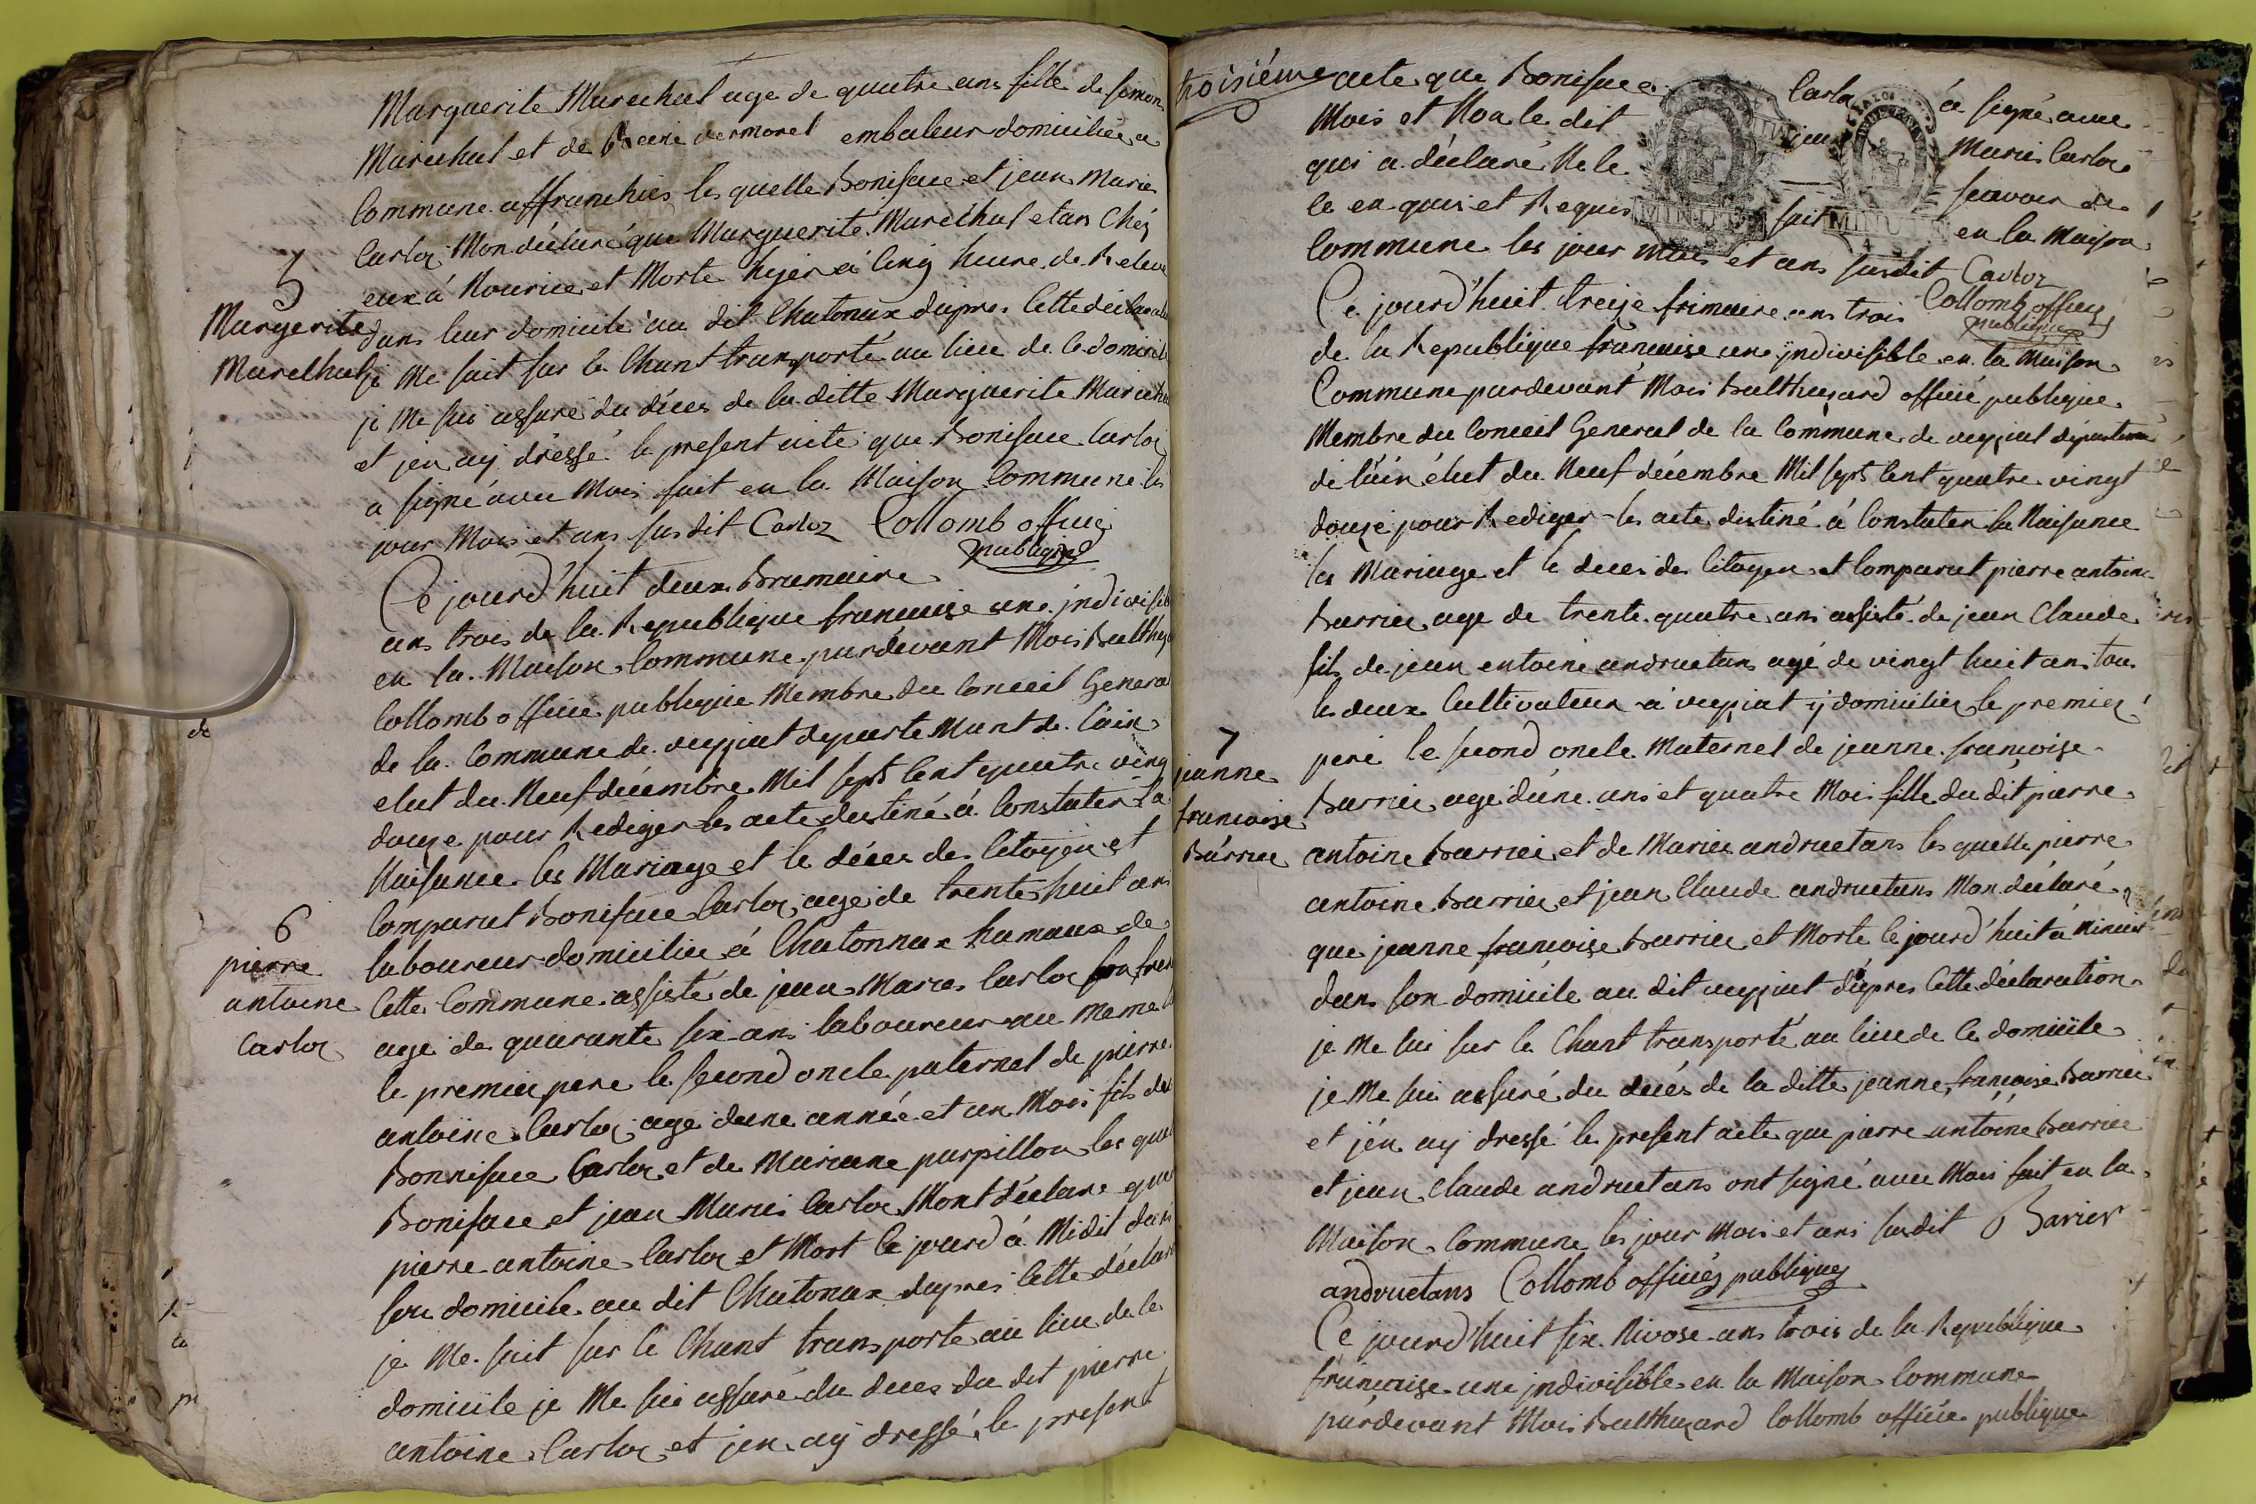 Marguerite Marechal age de quatre ans fille de simon
Marechal et de vermorel embaleur domicilié a
Commune affranchies les quelle Boniface et jean Marie
Carloz Mon déclaré que Marguerite Maréchal etan Chéz
eux á Nourice et Morte hyer á Cinq heure de Releve
5
Margerite
Marelhal
dans leur domicile au dit Chatonax dapres Cette declara
je Me suit sur le Chant transporté au lieu de ce domicile
je Me sui assuré du déces de la ditte Marguerite Marecha
et jen ay dréssé le present acte que Boniface Carloz
a signé avec Mois fait en la Maison Commune les
jour Mois et ans susdit Carloz Collomb officiéz
publique
Ce jourd'huit deux Brumaire
ans trois de la Republique francaise une jndivisib
en la Maison Commune pardevant Mois Balthaz
Collomb officié publique Membre du Conceil Genera
de la Commune de veyziat departeMant de láin
elut du Neuf décembre Mil sept Cent quatre ving
douze pour Rediger les acte destiné á Constater La
Naisance les Mariage et le déces des Citoyen et
Comparut Boniface Carloz age de trente huit ans
6
pierre
antoine
Carloz
laboureur domicilié á Chatonnax hamaux de
Cette Commune assisté de jean Maries Carloz son frer
age de quarante six ans laboureur au Meme
le premier pere le second oncle paternel de pierre
antoine Carloz age dune année et un Mois fils du
Bonniface Carloz et de Mariane paspillon les que
Boniface et jean Maries Carloz Mont déclaré que
pierre antoine Carloz et Mort Ce jourd á Midit dans
son domicile au dit Chatonax dapres Cette déclara
je Me suit sur le Chant transporte au lieu de ce
domicile je Me sui assuré du deces du dit pierre
antoine Carloz et jen ay dressé le present
troisiéme acte que Boniface Carloz á signé avec
Mois et Non le dit jean Maries Carloz
qui a déclaré Ne le scavoir de
ce en quis et Requis fait en la Maison
Commune les jour Mois et ans susdit Carloz
Collomb officiéz
publique
Ce jourd'huit treize frimaire ans trois
de la Republique francaise une jndivisible en la Maison
Commune pardevant Mois Balthazard officié publique
Membre du Conceil General de la Commune de veyziat departeme
de láin élut du Neuf décembre Mil sept Cent quatre vingt
douze pour Rediger les acte destiné á Constater la Naisance
les Mariage et le deces des Citoyen et Comparut pierre antoine
Barrier age de trente quatre ans assisté de jean Claude
fils de jean antoine andruetans agé de vingt huit ans tous
les deux Cultivateur á veyziat y domicilié le premier
7
jeanne
francoise
Bárrier
pere le second oncle Maternel de jeanne francoise
Barrier age dúne ans et quatre Mois fille du dit pierre
antoine Barrier et de Maries andruetans les quelle pierre
antoine Barrier et jean Claude andruetans Mon déclaré
que jeanne francoise Barrier et Morte Ce jourd'huit á Minuit
dans son domicile au dit veyziat dápres Cette déclaration
je Me sui sur le Chant transporté au lieu de Ce domicile
je Me sui assuré du decés de la ditte jeanne francoise Barrier
et jén ay dressé le present acte que pierre antoine Barrier
et jean Claude andruetans ont signé avec Mois fait en la
Maison Commune les jour Mois et ans susdit Barier
andruetans Collomb officiéz publique
Ce jourd'huit six Nivose ans trois de la Republique
francaise une jndivisible en la Maison Commune
pardevant Mois Balthazard Collomb officié publique